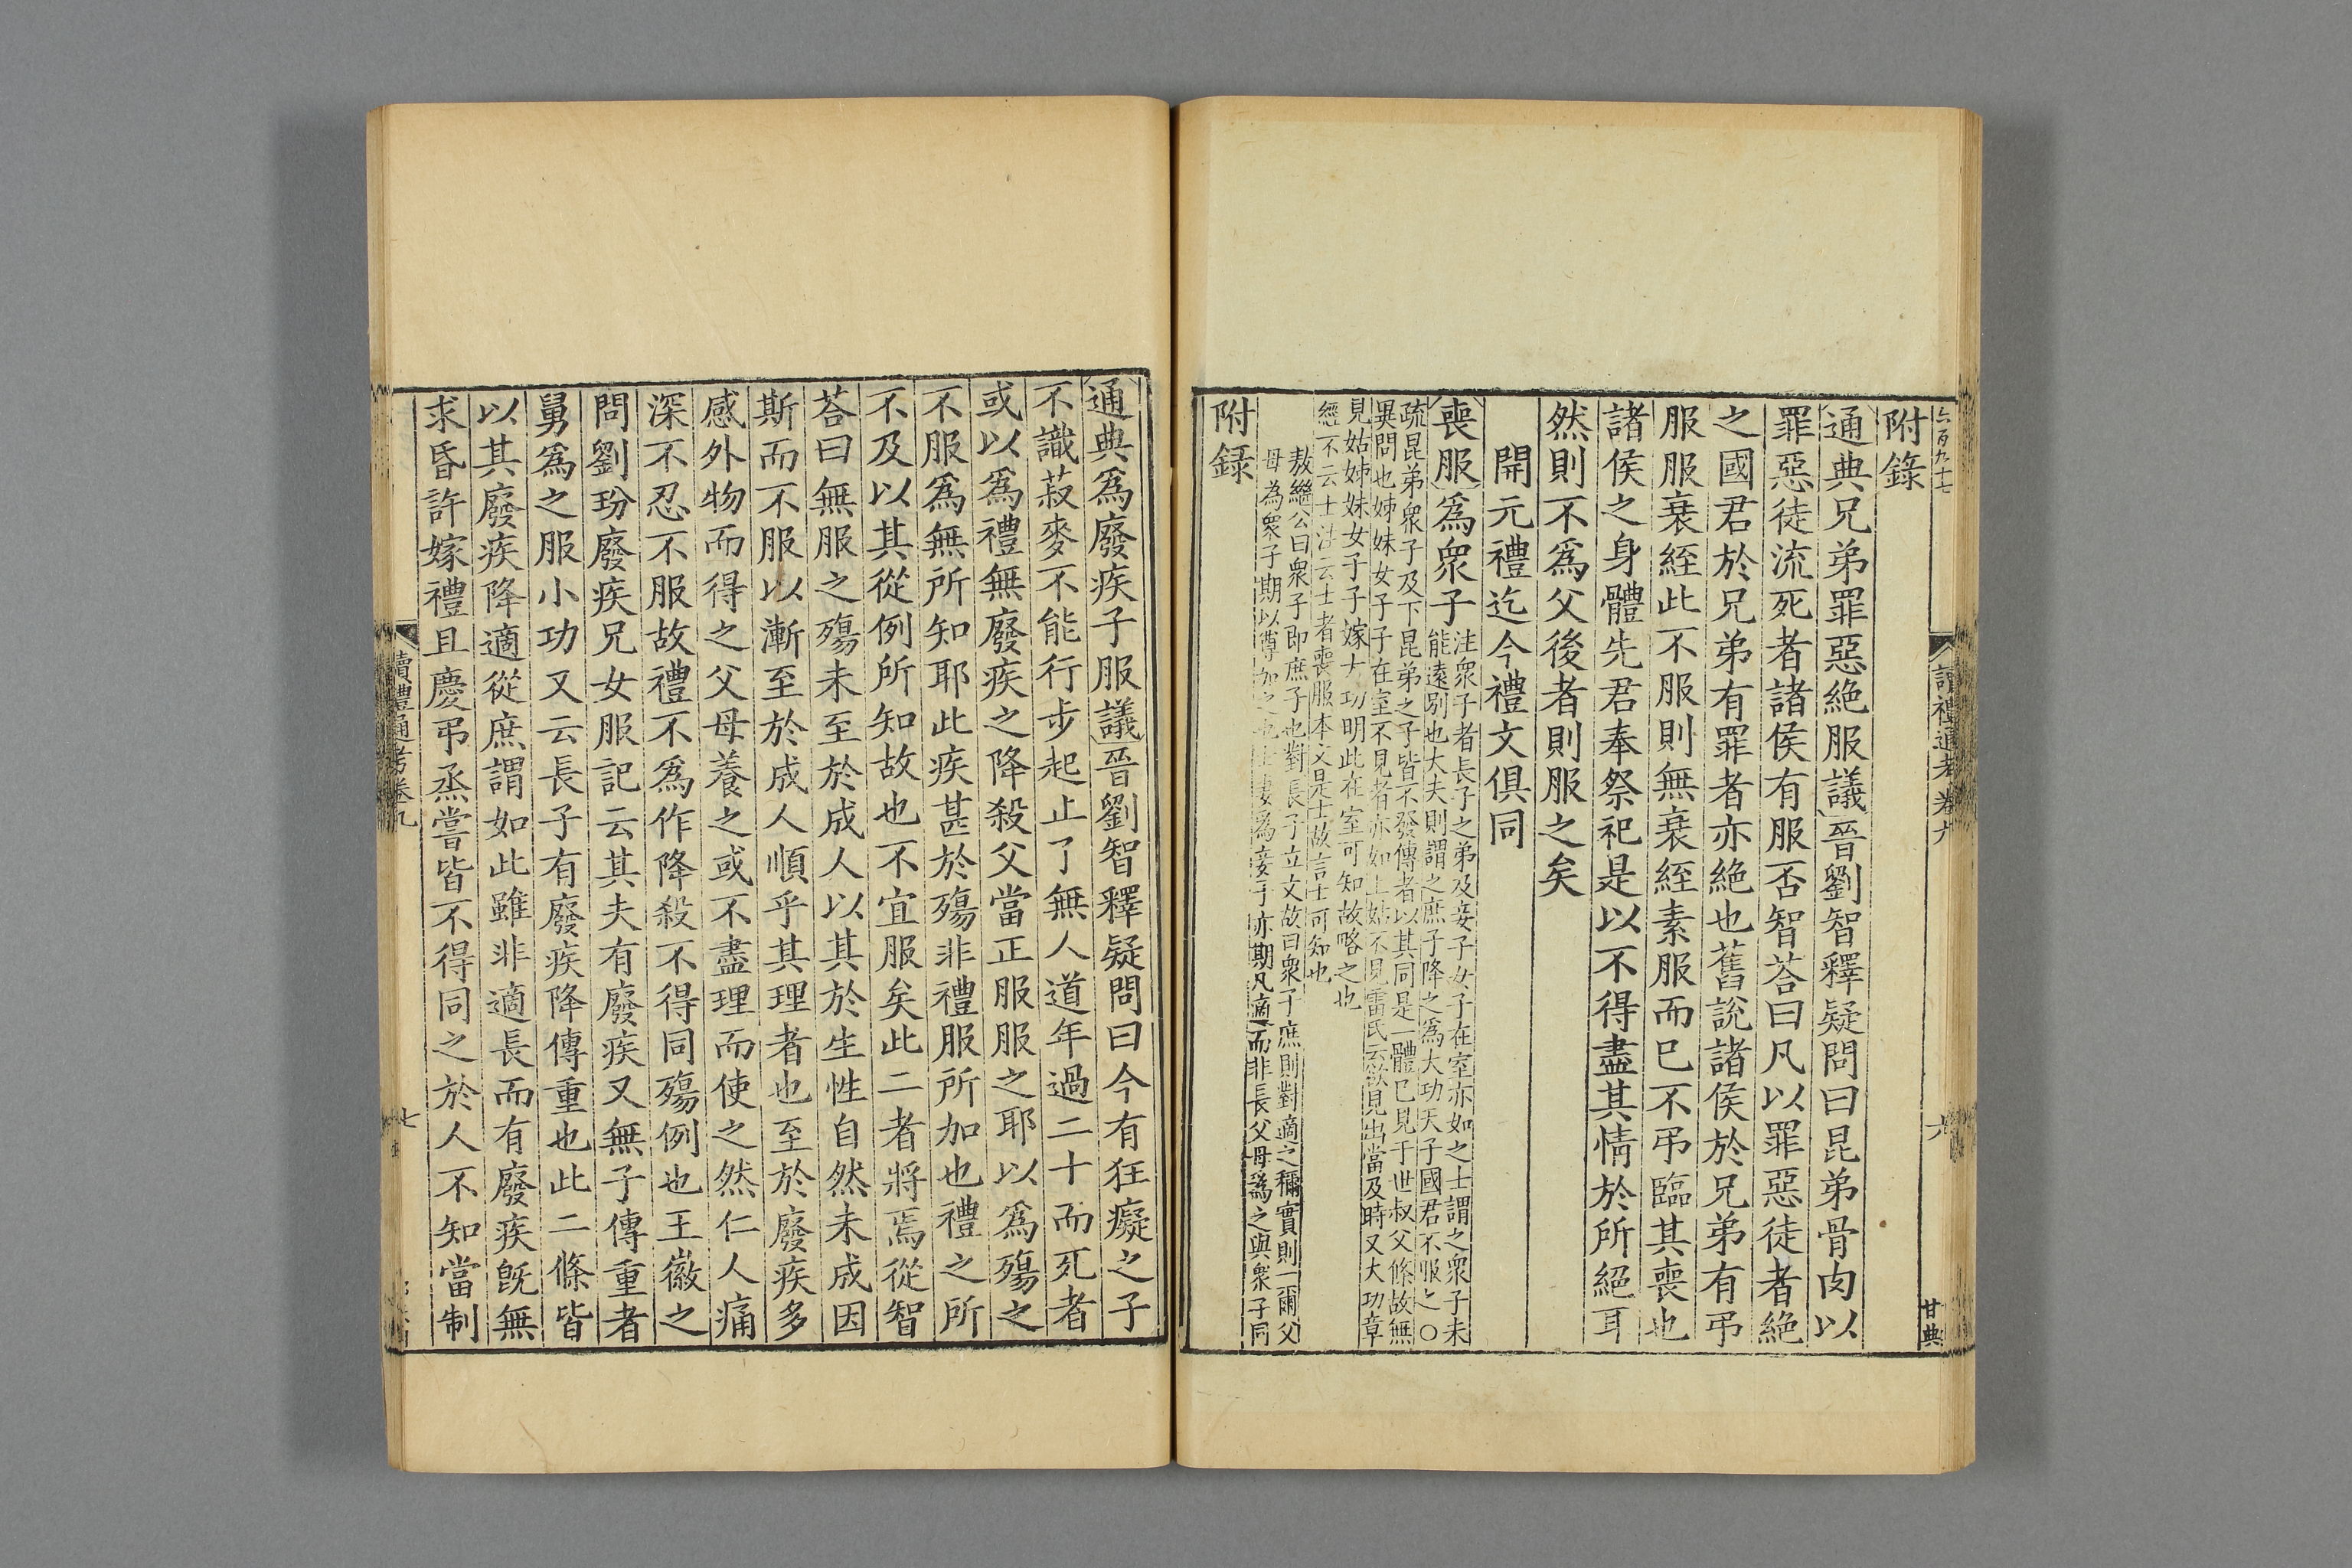 六百九十七
讀禮通考卷九
六
甘典
附錄
通典兄弟罪惡絶服議晉劉智釋疑問曰昆弟骨肉以
罪惡徒流死者諸侯有服否智荅曰凡以罪惡徒者絶
之國君於兄弟有罪者亦絶也舊説諸侯於兄弟有弔
服服衰絰此不服則無衰絰素服而已不弔臨其喪也
諸侯之身體先君奉祭祀是以不得盡其情於所絕耳
然則不爲父後者則服之矣
開元禮迄今禮文俱同
喪服爲衆子
注衆子者長子之弟及妾子女子在室亦如之士謂之衆子未
能遠別也大夫則謂之庶子降之爲大功天子國君不服之〇
疏昆弟衆子及下昆弟之子皆不發傳者以其同是一體已見于世叔父條故無
異問也姊妹女子子在室不見者亦如上姑不見雷氏云欲見出當及時又大功章
見姑姊妹女子子嫁大功明此在室可知故略之也
經不云士注云士者喪服本文是士故言士可知也
敖繼公曰衆子即庶子也對長子立文故曰衆子庶則對適之稱實則一爾父
母為衆子期以尊加之也士妻爲妾子亦期凡適而非長父母爲之與衆子同
附録
通典爲廢疾子服議晉劉智釋疑問曰今有狂癡之子
不識菽麥不能行步起止了無人道年過二十而死者
或以爲禮無廢疾之降殺父當正服服之耶以爲殤之
不服爲無所知耶此疾甚於殤非禮服所加也禮之所
不及以其從例所知故也不宜服矣此二者將焉從智
荅曰無服之殤未至於成人以其於生性自然未成因
斯而不服以漸至於成人順乎其理者也至於廢疾多
感外物而得之父母養之或不盡理而使之然仁人痛
深不忍不服故禮不爲作降殺不得同殤例也王徽之
問劉玢廢疾兄女服記云其夫有廢疾又無子傳重者
舅爲之服小功又云長子有廢疾降傳重也此二條皆
以其廢疾降適從庶謂如此雖非適長而有廢疾旣無
求昏許嫁禮且慶弔烝嘗皆不得同之於人不知當制
讀禮通考卷九
七